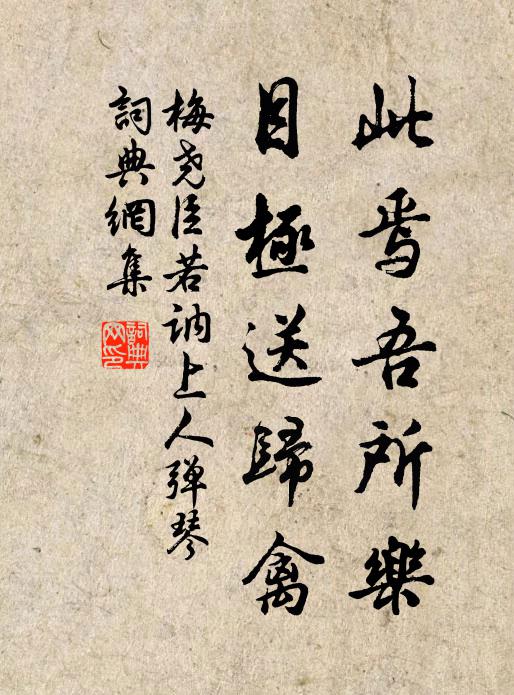 此焉吾所樂
目極送歸禽
梅尧臣若訥上人弹琴
詞典網集
詞典網印